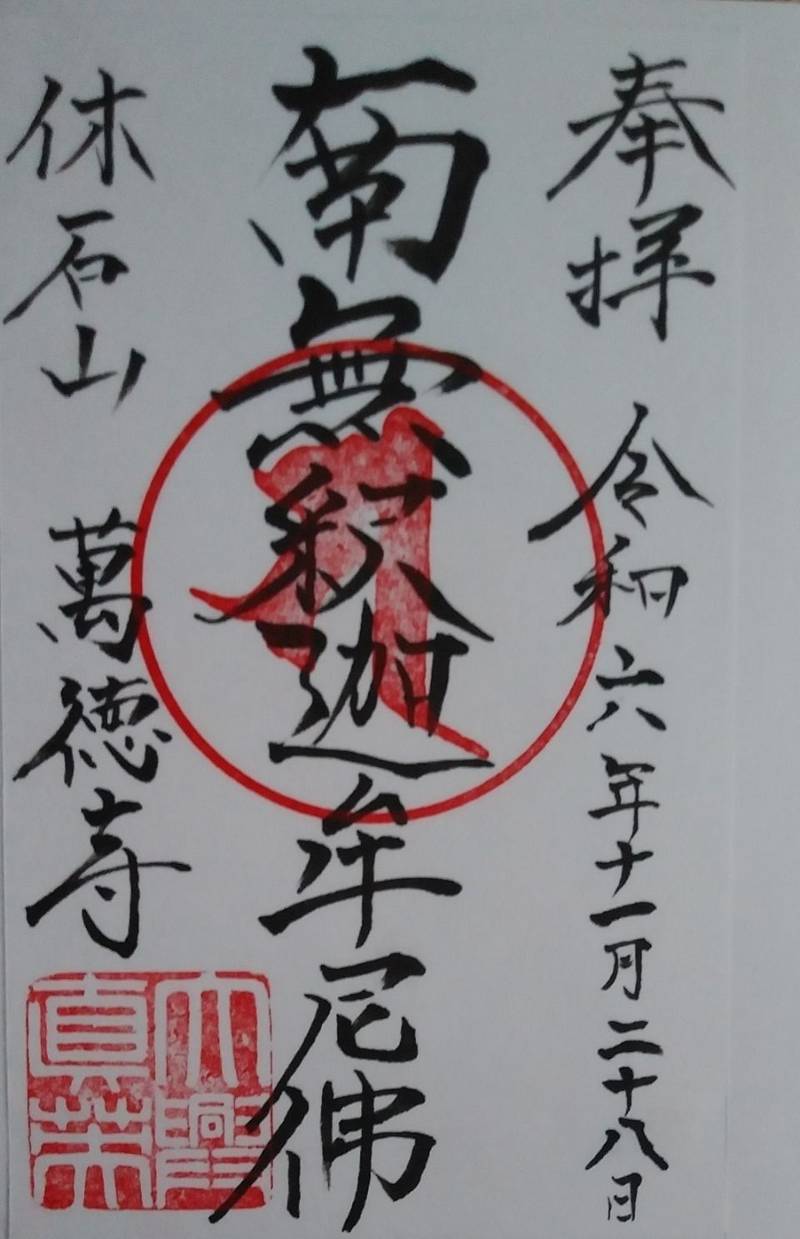 奉拝 令和六年十一月二十八日
南無釈迦牟尼佛
休石山 萬徳寺